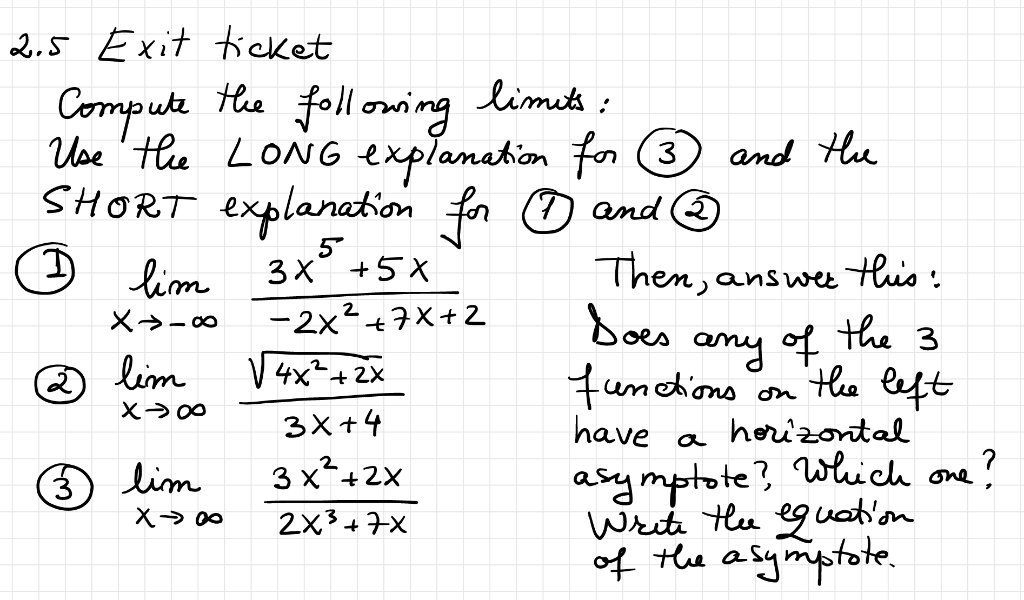 2.5 Exit ticket
Compute the following limits:
Use the LONG explanation for ③ and the
SHORT explanation for ① and ②
① lim x→-∞ (3x⁵+5x)/(-2x²+7x+2)
② lim x→∞ √(4x²+2x)/(3x+4)
③ lim x→∞ (3x²+2x)/(2x³+7x)
Then, answer this:
Does any of the 3
functions on the left
have a horizontal
asymptote? Which one?
Write the equation
of the asymptote.